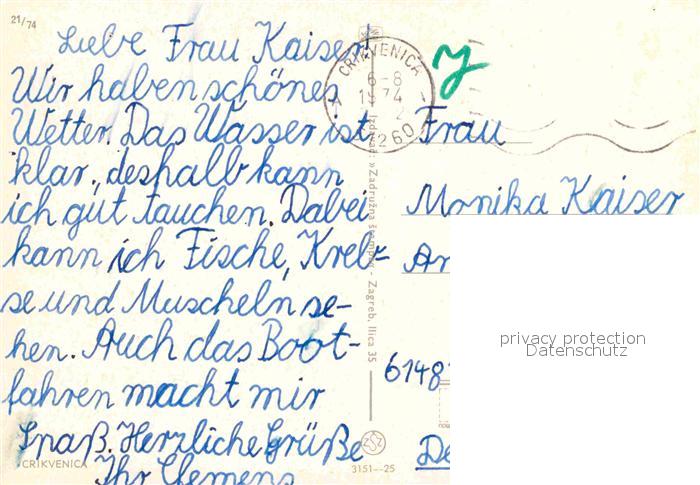 21/74
Liebe Frau Kaiser!
Wir haben schönes
Wetter. Das Wasser ist
klar, deshalb kann
ich gut tauchen. Dabei
kann ich Fische, Kreb-
se und Muscheln se-
hen. Auch das Boot-
fahren macht mir
Spaß. Herzliche Grüße
Ihr Clemens
CRIKVENICA
3151--25
CRIKVENICA
6-8
74
Zadružna štampa - Zagreb, Ilica 35
Frau
Monika Kaiser
6148
privacy protection
Datenschutz